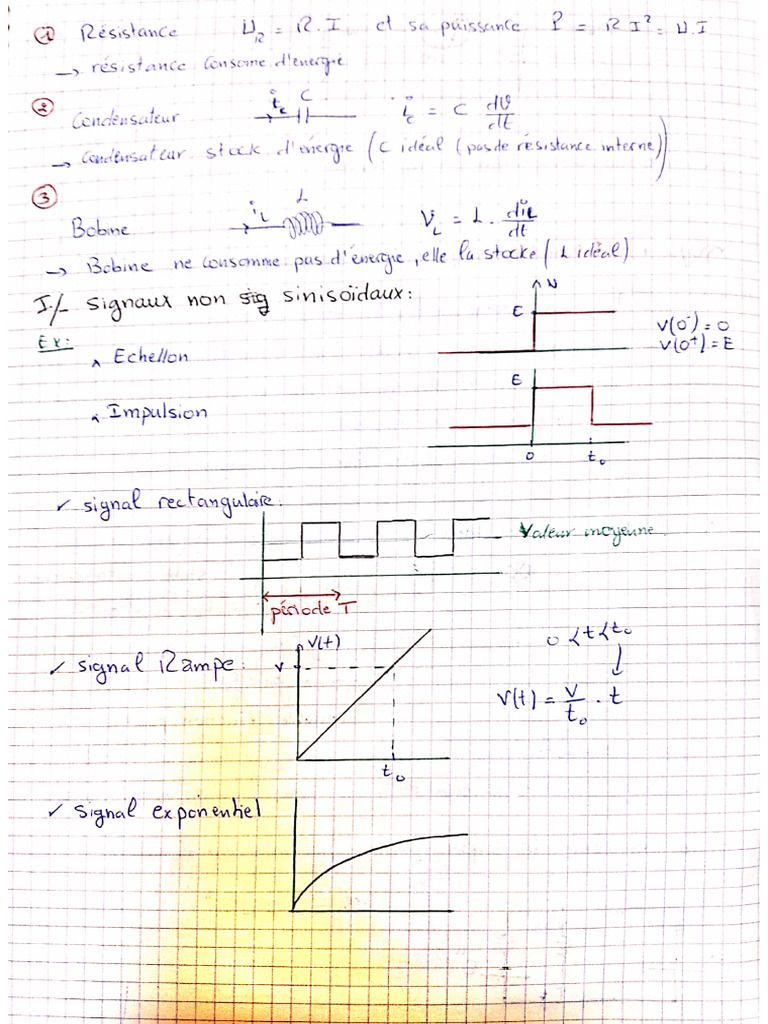 ① Résistance U_R = R.I et sa puissance P = R I² = U.I
→ résistance Consome d'energie
② Condensateur i_c C i_c = C dv/dt
→ Condensateur stock d'énergie (C idéal (pas de résistance interne))
③ Bobine i_L L V_L = L . di_L/dt
→ Bobine ne consomme pas d'énergie, elle la stocke (L idéal)
I/- signaux non sig sinisoïdaux :
Ex: E v v(0⁻) = 0
v(0⁺) = E
Echellon
E
Impulsion
0 t₀
✓ signal rectangulaire.
Valeur moyeune
période T
v(t) 0 < t < t₀
✓ signal Rampe. v
v(t) = v/t₀ . t
t₀
✓ signal exponentiel